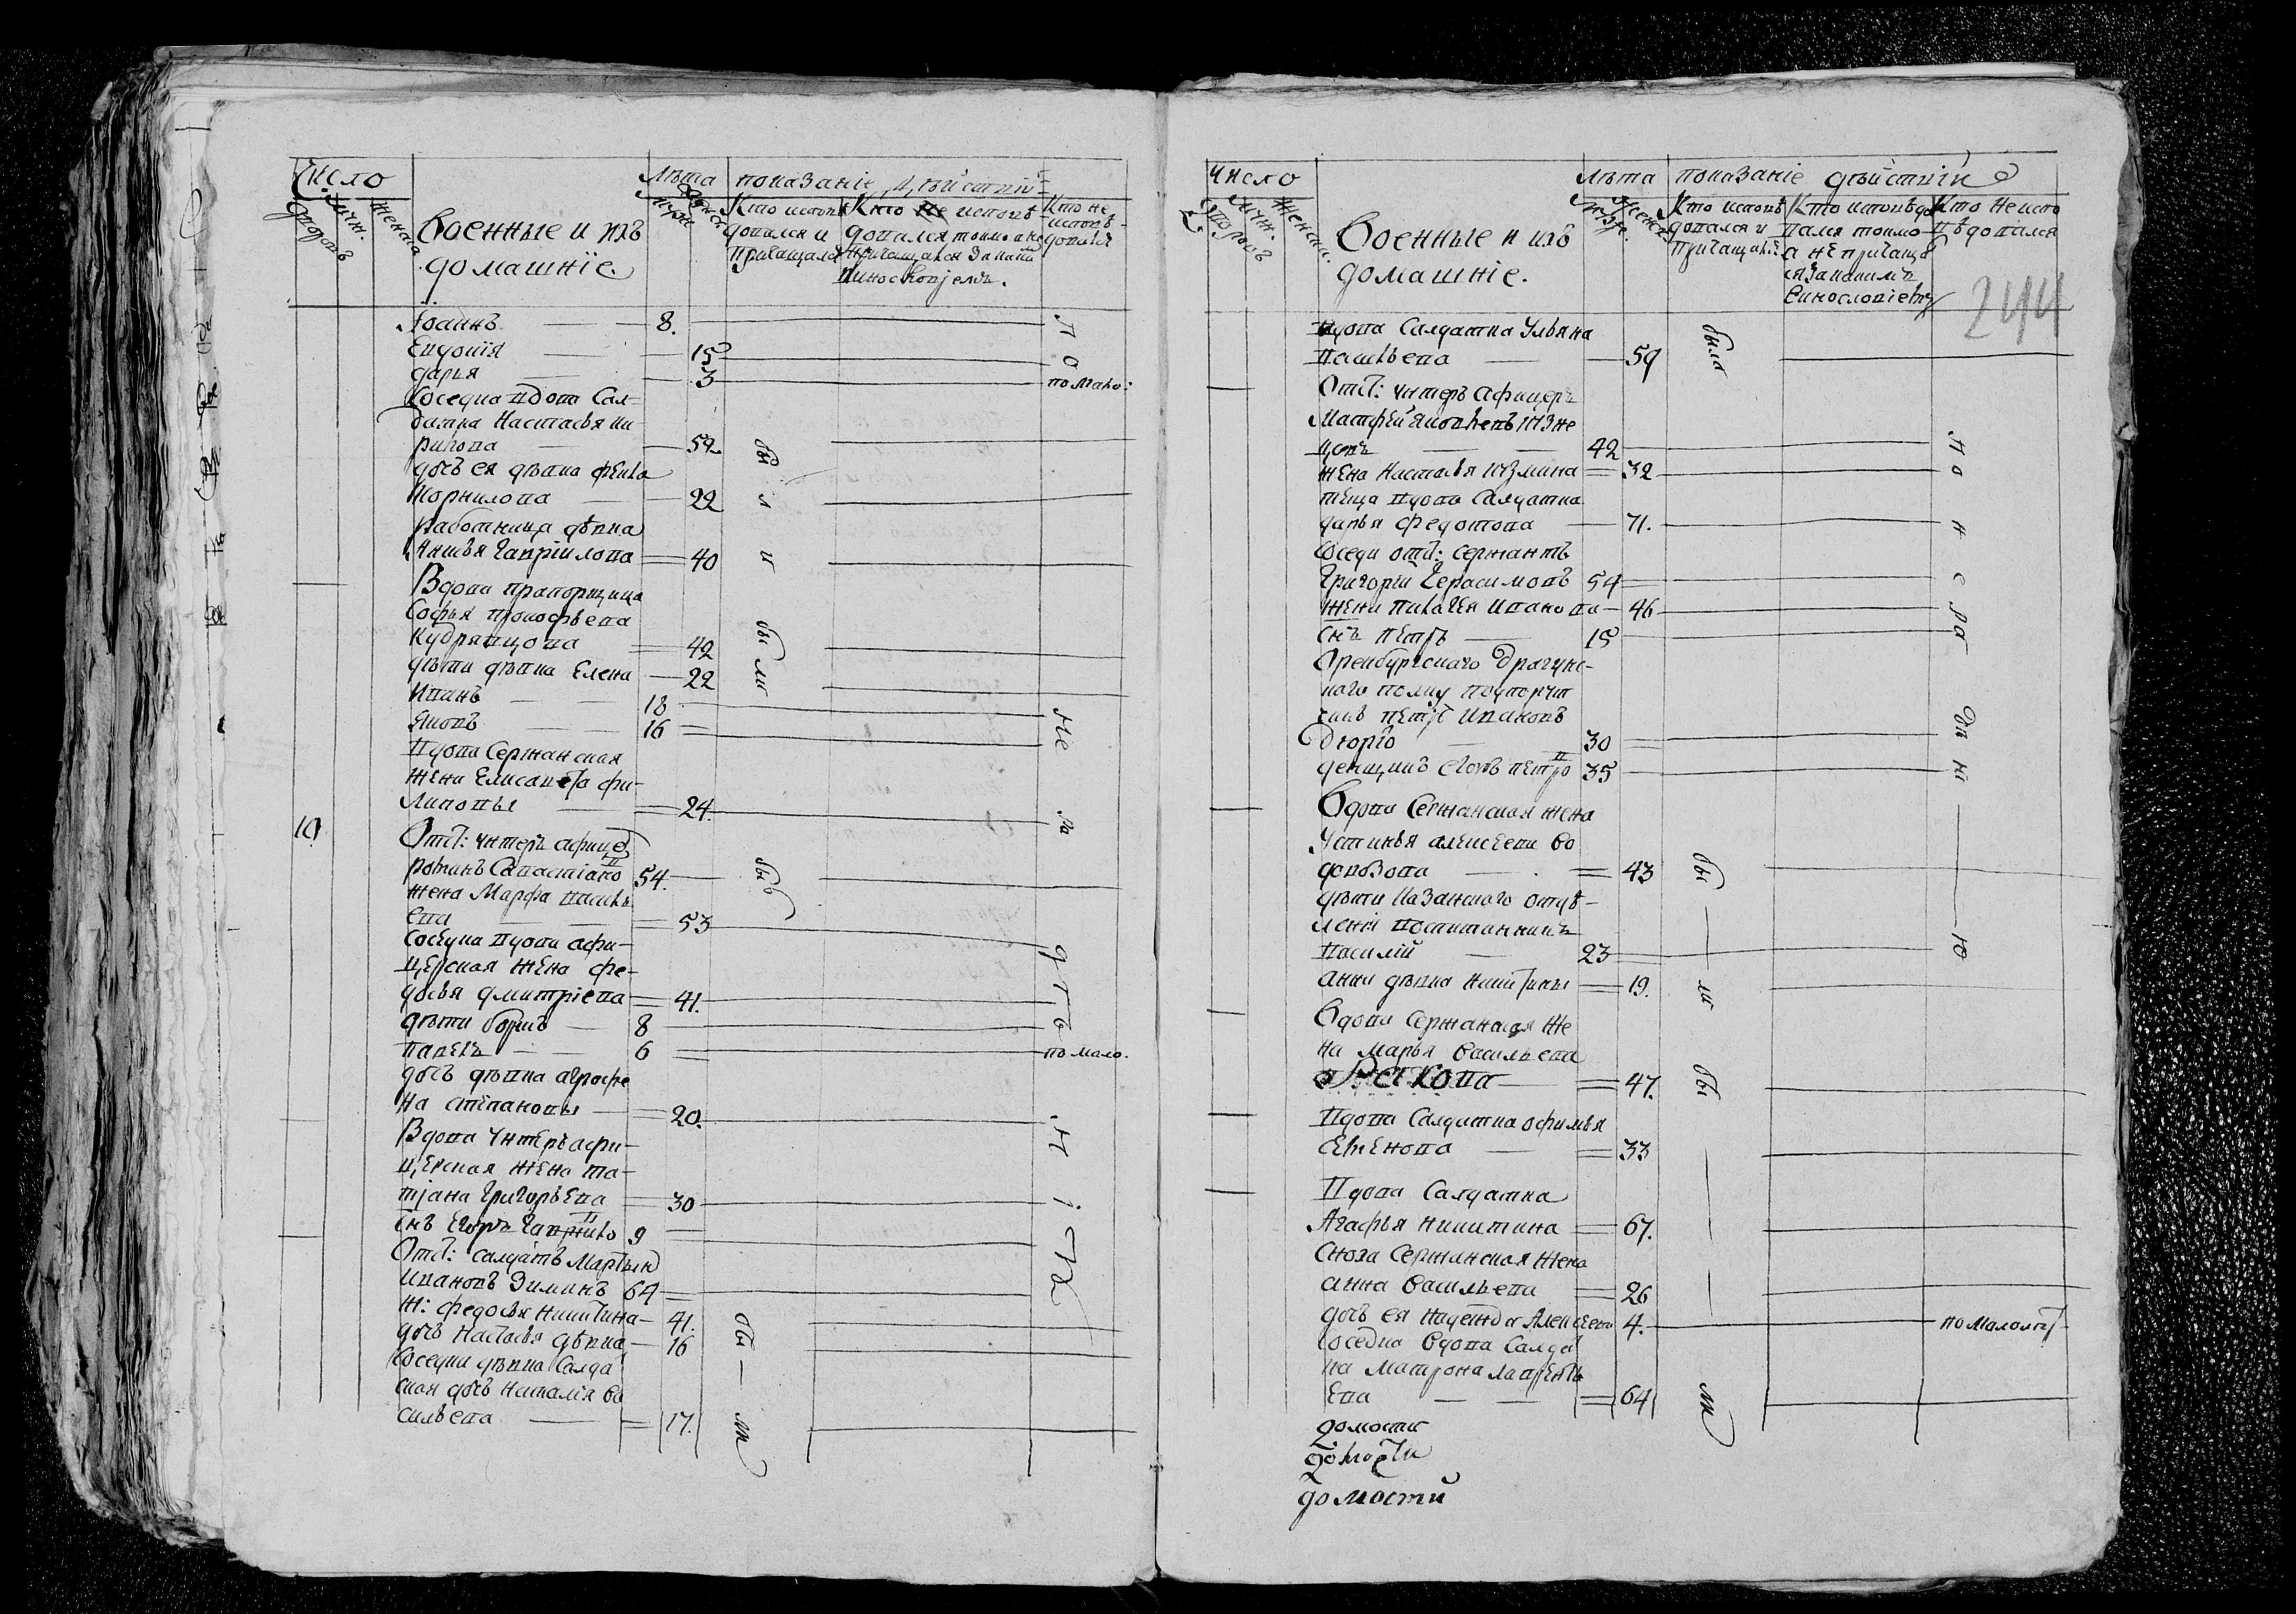 Число
дворовъ
мужн.
Женска
Военные и ихъ
домашніе.
Лѣта
мужн
женска
показаніе дѣйствій
Кто исповѣ
довался и
причащался
Кто не исповѣ
довался токмо а не
причащался за каки
винословіемъ.
Кто не
исповѣ-
довался
Іоаннъ 8.
Евдокія 15
дарья 3 по мало:
Соседка вдова Сал-
датка Настасья ки
рилова 52
дочь ея дѣвка фекла
Корнилова 22
Работница дѣвка
Анисья Гавріилова 40
были
Вдова прапорщица
Софья прокофьева
Кудрявцова 42
дѣти дѣвка Елена 22
были
Иванъ 18
яковъ 16
Не
Вдова Сержанская
жена Елисавета фи-
липовы 24.
10
Отст: унтеръ афице
романъ Савастіано 54.
Жена Марфа василь
ева 53
Соседка вдова афи-
церская жена фе-
досья дмитріева 41.
дѣти борисъ 8
павелъ 6 по мало.
дочь дѣвка аграфе
на степановы 20.
Вдова унтеръ афи-
церская жена та-
тіана Григорьева 30
снъ Егоръ Гаврило 9
Отст: салдатъ Мартын
Ивановъ Зиминъ 64
Ж: федосья никитина 41.
дочь Настасья дѣвка 16
Соседка дѣвка Салда
ская дочь Наталія ва
сильева 17.
бы — ли
Число
дворовъ
мужн.
Женска.
Военные и ихъ
домашніе.
Лѣта
мужн.
женска
показаніе дѣйствіи
Кто исповѣ
довался и
причащалс
Кто исповѣдо
вался токмо
а не причаща
ся за какимъ
винословіемъ
Кто не испо
вѣдовался
244
вдова Салдатка Ульяна
васильева 59 была
Отст: унтеръ афицеръ
Матфей яковлевъ
цовъ 42
жена Настасья козмина 32
теща вдова Салдатка
дарья федотова 71.
Соседи отст: сержантъ
Григорій Герасимовъ 54
жена пилагея Иванова 46
снъ петръ 15
Оренбургскаго драгунс-
каго полку подпорут
чикъ петръ Ивановъ
Дюрго 30
денщикъ Егоръ петро 35
Вдова Сержанская жена
Устинья алексеева во
довозова 43
дѣти Казанскаго отдѣ-
ленія воспитанникъ
василій 23
анна дѣвка никитины 19.
бы — ли
Вдова Сержанская же
на Марья васильева
47.
Вдова Салдатка офимья
семенова 33
Вдова Салдатка
Агафья никитина 67.
Сноха Сержанская жена
анна васильева 26
дочь ея надежда Алексеева 4. по малолѣт
Соседка вдова Салда
ка матрона лаврентье
ева 64
ли
домости
домости
домостй